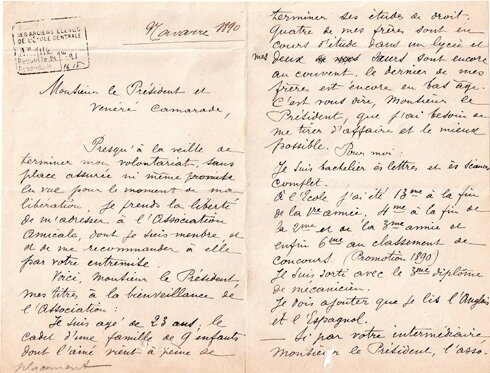 DES ANCIENS ÉLÈVES
DE L'ÉCOLE CENTRALE
1890
Monsieur le Président et
Vénéré Camarade,
Presqu'à la veille de
terminer mon volontariat, sans
place assurée ni même promise
en vue pour le moment de ma
libération je prends la liberté
de m'adresser à l'Association
Amicale, dont je suis membre et
et de me recommander à elle
par votre entremise.
Voici, Monsieur le Président,
mes titres à la bienveillance de
l'Association:
Je suis agé de 23 ans; le
cadet d'une famille de 9 enfants
dont l'ainé vient à peine de
placement
terminer ses études de droit.
Quatre de mes frères sont en
cours d'étude dans un lycée et
mes deux sœurs sont encore
au couvent, le dernier de mes
frères est encore en bas âge.
C'est vous dire, Monsieur le
Président, que j'ai besoin de
me tirer d'affaire et le mieux
possible. Pour moi:
Je suis bachelier ès lettres et ès sciences
complet.
À l'École j'ai été 13me à la fin
de la 1re année, 4me à la fin de
la 2me et de la 3me année et
enfin 6me au classement de
concours. (Promotion 1890)
Je suis sorti avec le 3me diplôme
de mécanicien.
Je dois ajouter que je lis l'Anglais
et l'Espagnol.
— Si par votre intermédiaire,
Monsieur le Président, l'asso-